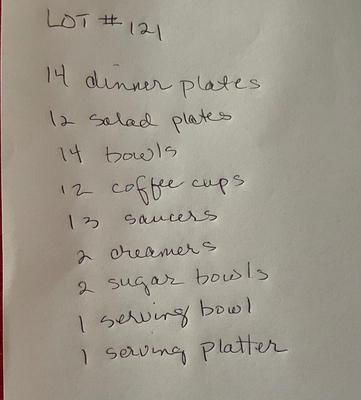 LOT # 121
14 dinner plates
12 salad plates
14 bowls
12 coffee cups
13 saucers
2 creamers
2 sugar bowls
1 serving bowl
1 serving platter